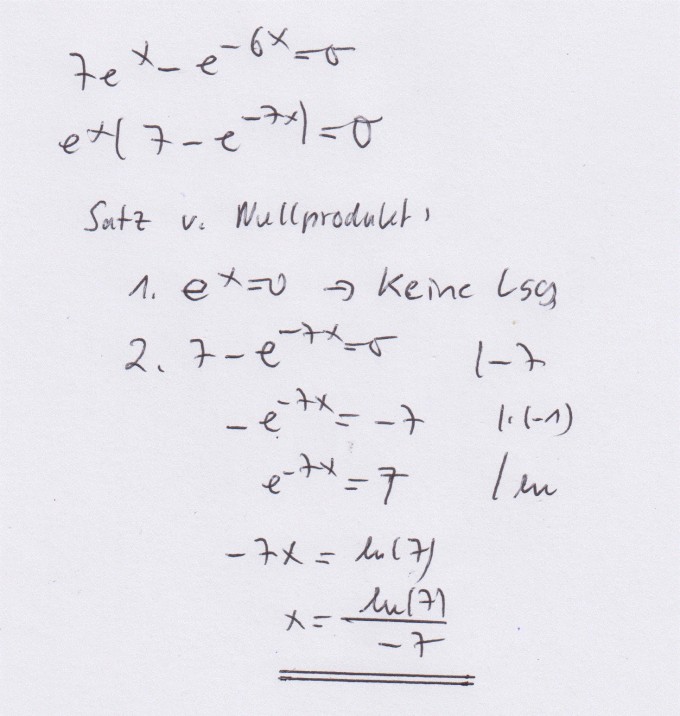 7e^x - e^-6x = 0
e^x(7 - e^-7x) = 0
Satz v. Nullprodukt,
1. e^x = 0 → Keine Lsg
2. 7 - e^-7x = 0 | -7
-e^-7x = -7 | · (-1)
e^-7x = 7 | ln
-7x = ln(7)
x = ln(7) / -7